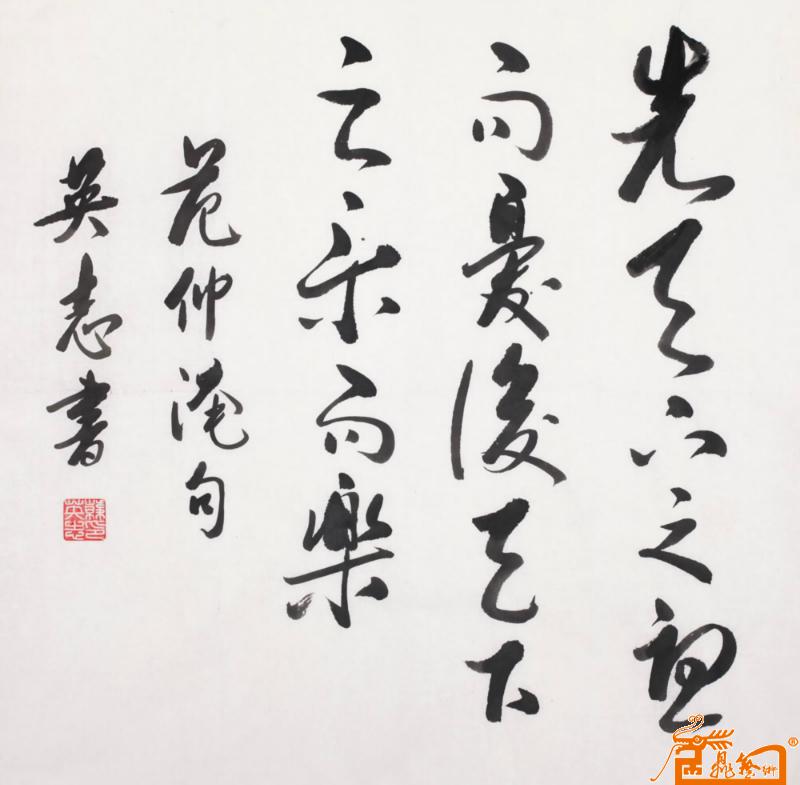 先天下之憂
而憂後天下
之乐而樂
范仲淹句
英志書